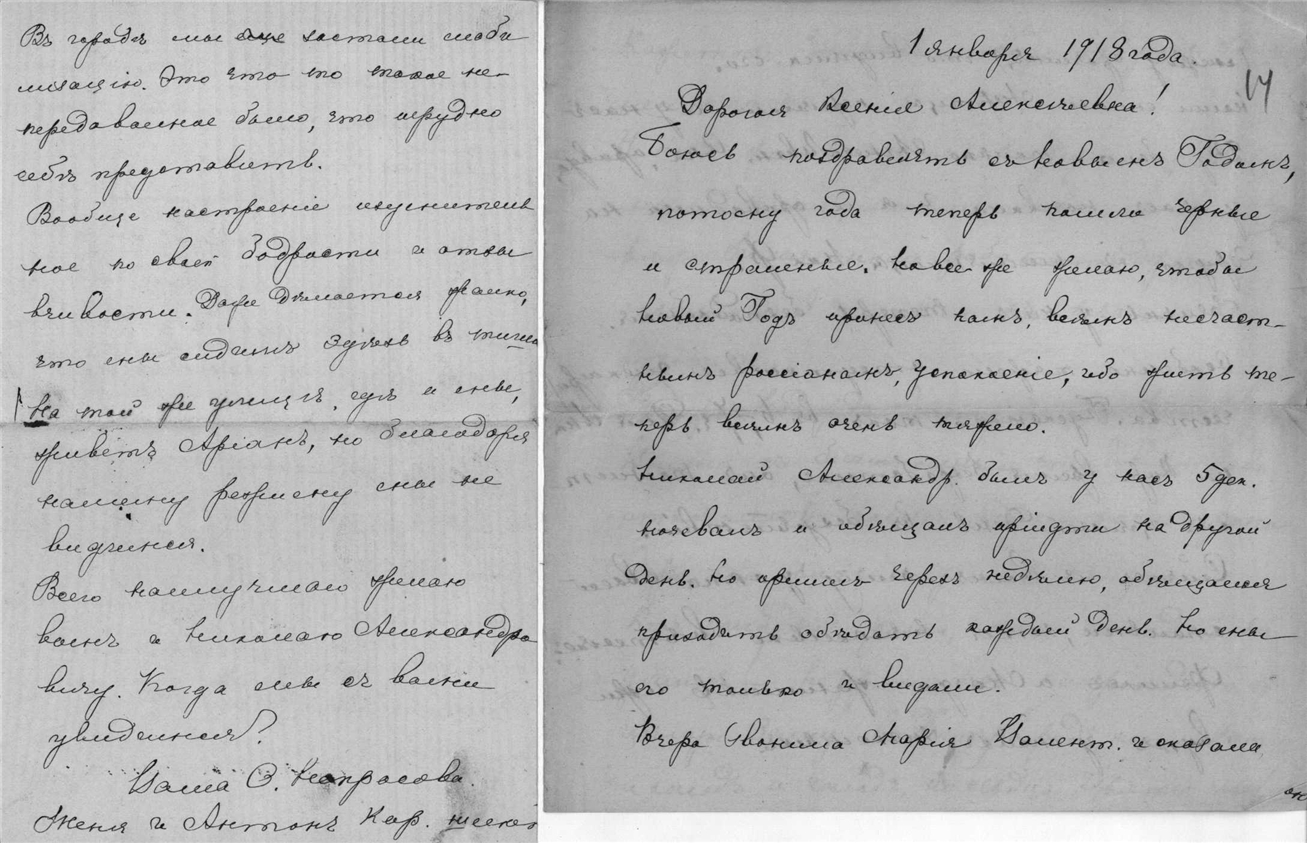 Въ городѣ мы еще застали моби
лизацію. Это что то такое не-
передаваемое было, что трудно
себѣ представить.
Вообще настроеніе изумитель
ное по своей бодрости и отзы
вчивости. Даже дѣлается жалко,
что мы сидимъ здѣсь въ тиши
На той же улицѣ, гдѣ и мы,
живетъ Аріанъ, но благодаря
нашему режиму мы не
видимся.
Всего наилучшаго желаю
вамъ и Николаю Александро
вичу. Когда мы съ вами
увидимся?
Ваша О. Некрасова.
Женя и Антонъ Кар.
1 января 1918 года.
14
Дорогая Ксенія Алексѣевна!
Боюсь поздравлять съ Новымъ Годомъ,
потому года теперь пошли черные
и страшные. Но все же желаю, чтобы
Новый Годъ принесъ намъ, всѣмъ несчаст-
нымъ россіянамъ, успокоеніе, ибо жить те-
перь всѣмъ очень тяжело.
Николай Александр. былъ у насъ 5 дек.
ночевалъ и обѣщалъ прійдти на другой
день. Но пришелъ черезъ недѣлю, обѣщался
приходить обѣдать каждый день. Но мы
его только и видали.
Вчера звонила Марія Валент. и сказала